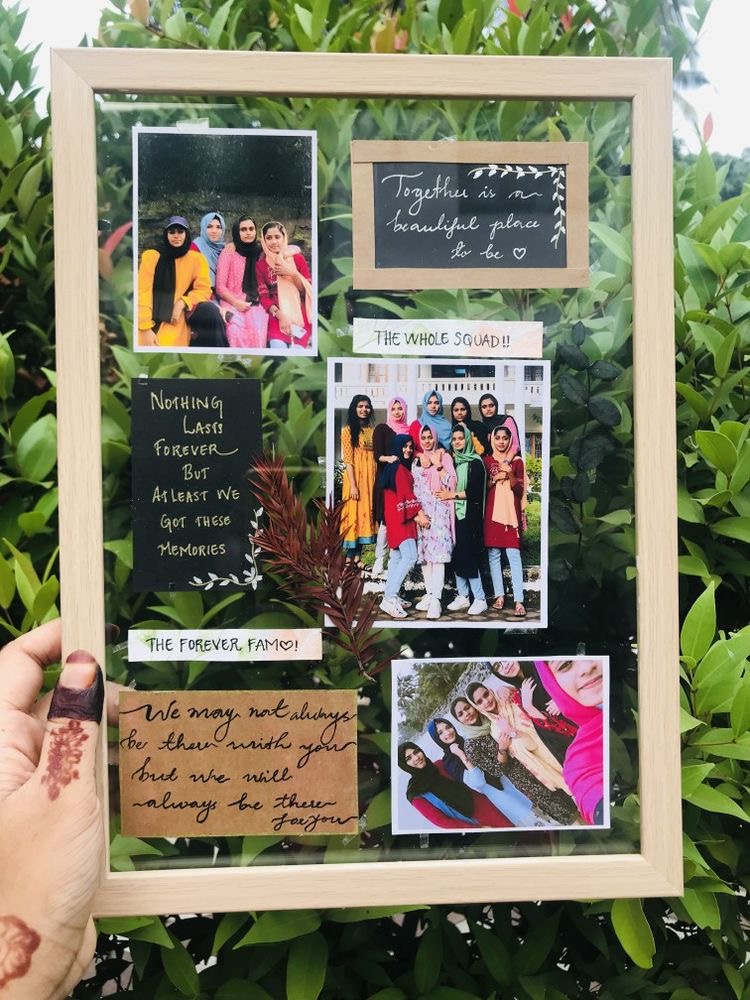 Together is a
beautiful place
to be ♡
THE WHOLE SQUAD!!
NOTHING
LASTS
FOREVER
BUT
ATLEAST WE
GOT THESE
MEMORIES
THE FOREVER FAM♡!
We may not always
be there with you
but we will
always be there
for you